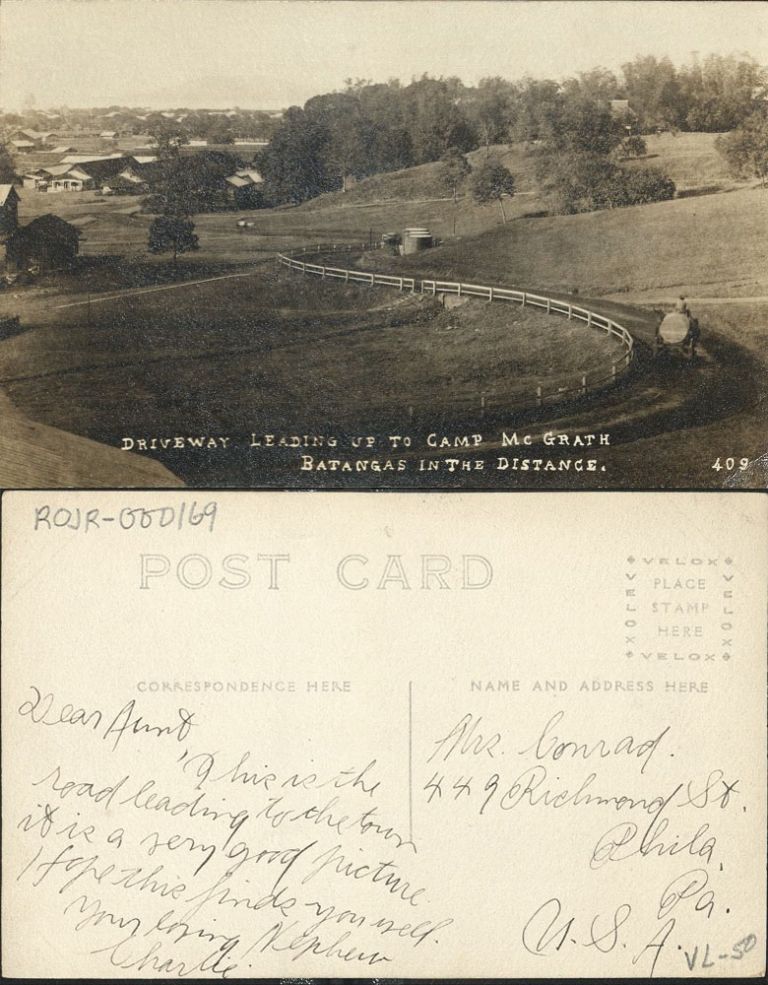 DRIVEWAY LEADING UP TO CAMP MC GRATH
BATANGAS IN THE DISTANCE.
409
ROJR-000169
POST CARD
VELOX
VELOX
PLACE
STAMP
HERE
VELOX
VELOX
CORRESPONDENCE HERE
NAME AND ADDRESS HERE
Dear Aunt
This is the
road leading to the town
it is a very good picture
I hope this finds you well.
Your loving Nephew
Charlie.
Mrs. Conrad.
449 Richmond St.
Phila,
Pa.
U. S. A.
VL-50